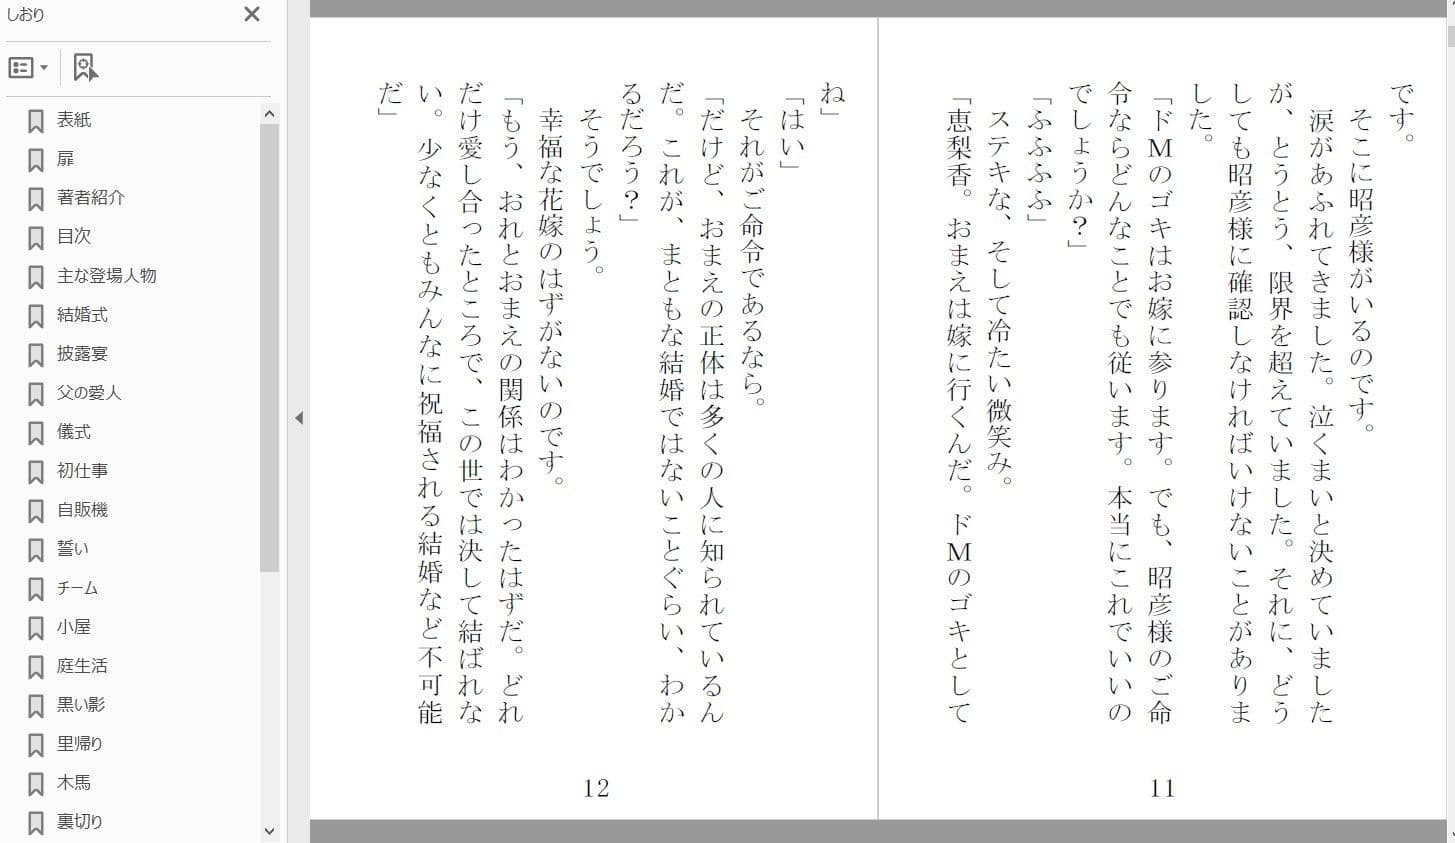 しおり
表紙
扉
著者紹介
目次
主な登場人物
結婚式
披露宴
父の愛人
儀式
初仕事
自販機
誓い
チーム
小屋
庭生活
黒い影
里帰り
木馬
裏切り
です。
そこに昭彦様がいるのです。
涙があふれてきました。泣くまいと決めていました
が、とうとう、限界を超えていました。それに、どう
しても昭彦様に確認しなければいけないことがありま
した。
「ドMのゴキはお嫁に参ります。でも、昭彦様のご命
令ならどんなことでも従います。本当にこれでいいの
でしょうか？」
「ふふふふ」
ステキな、そして冷たい微笑み。
「恵梨香。おまえは嫁に行くんだ。ドMのゴキとして
11
ね」
「はい」
それがご命令であるなら。
「だけど、おまえの正体は多くの人に知られているん
だ。これが、まともな結婚ではないことぐらい、わか
るだろう？」
そうでしょう。
幸福な花嫁のはずがないのです。
「もう、おれとおまえの関係はわかったはずだ。どれ
だけ愛し合ったところで、この世では決して結ばれな
い。少なくともみんなに祝福される結婚など不可能
だ」
12